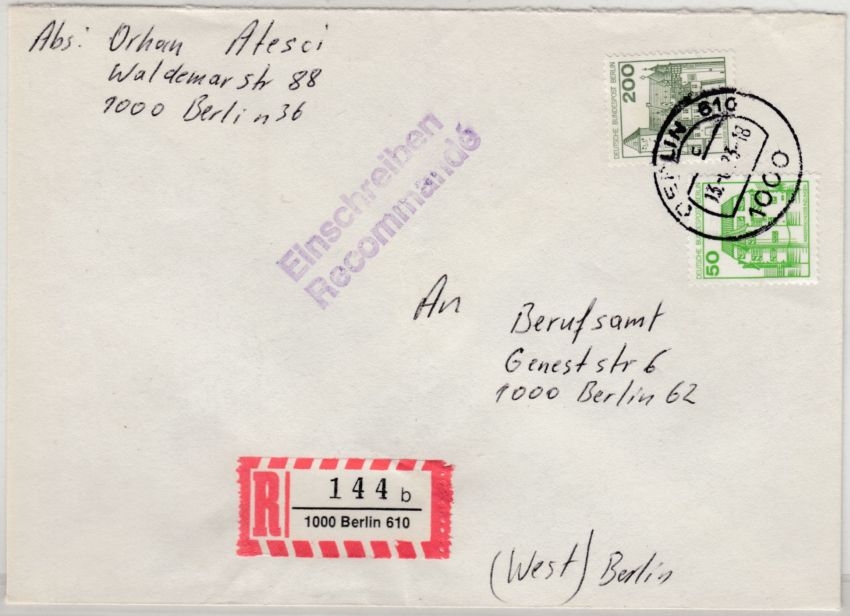 Abs: Orhan Atesci
Waldemarstr 88
1000 Berlin 36
Einschreiben
Recommandé
200
DEUTSCHE BUNDESPOST BERLIN
BERLIN 610
1000
50
DEUTSCHE BUNDESPOST BERLIN
An
Berufsamt
Geneststr 6
1000 Berlin 62
R
144 b
1000 Berlin 610
(West) Berlin